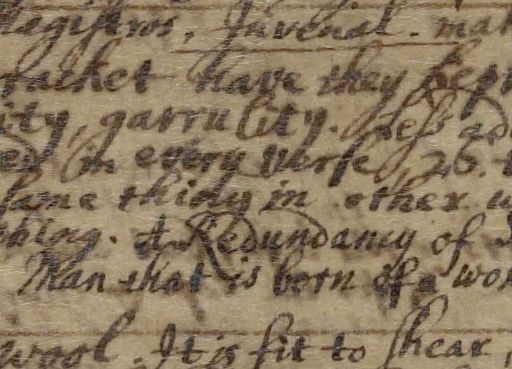 Magistros, Juvenal. ma
rather have they kep
ity, garrulity. less ad
ed in every verse 26.
same thing in other w
thing. A Redundancy of
Man that is born of a wo
wool. It is fit to shear,